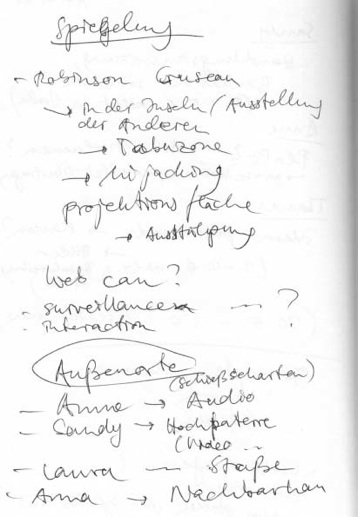 Spiegelung
- Robinson Cruseau
→ in der Inseln / Ausstellung
der Anderen
→ Tabuzone
→ hijacking
projektionsfläche
→ Ausstülpung
Web cam?
- surveillance — ?
- interaction
Außenorte
(Schießscharten)
- Anna → Audio
- Candy → Hochpaterre
(Video ..
- Laura — Staße
- Anna → Nachbarhau